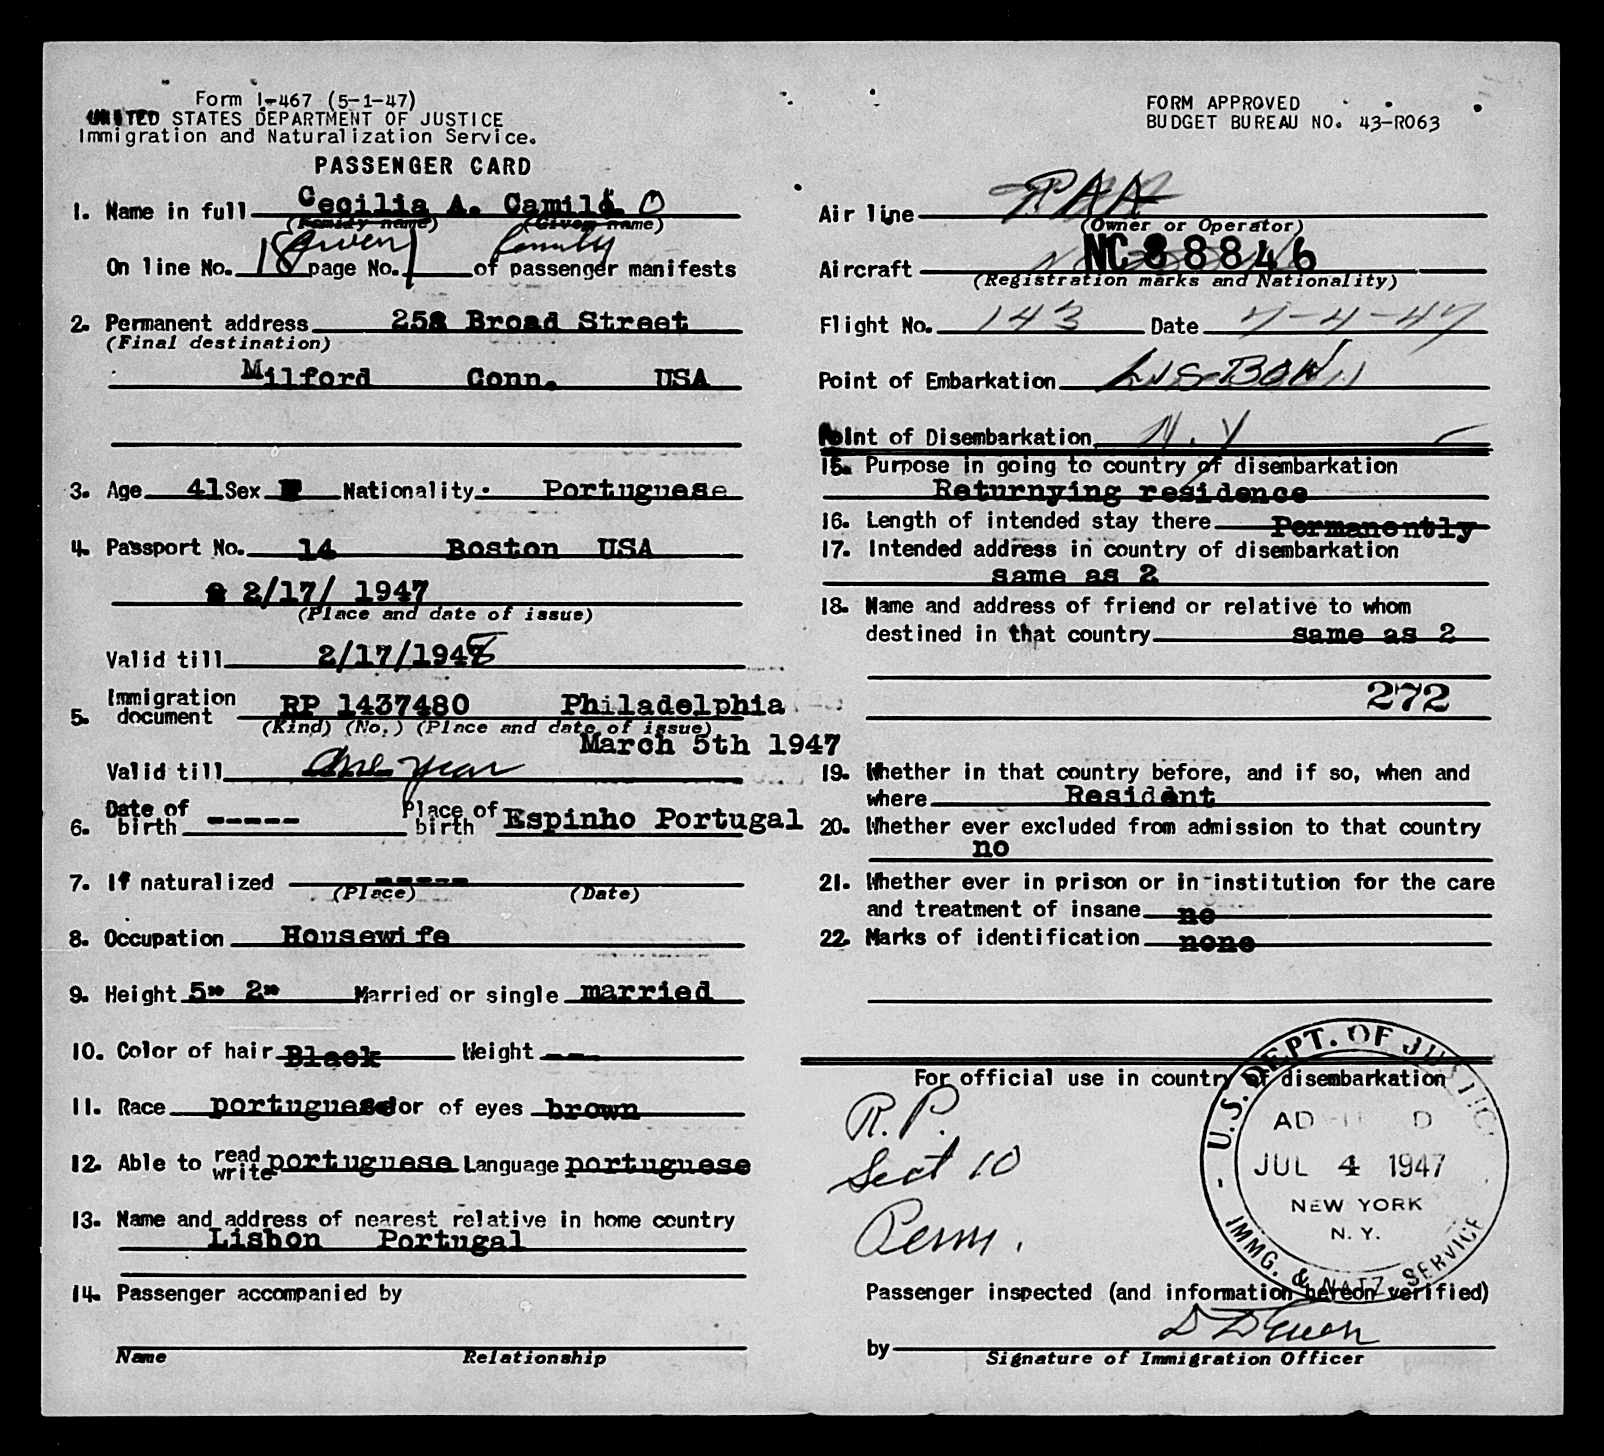 Form I-467 (5-1-47)
UNITED STATES DEPARTMENT OF JUSTICE
Immigration and Naturalization Service.
PASSENGER CARD
1. Name in full Cecilia A. Camilo O
(Family name) (Given name)
(given) family
On line No. 18 page No. 1 of passenger manifests
2. Permanent address 258 Broad Street
(Final destination)
Milford Conn. USA
3. Age 41 Sex Nationality. Portuguese
4. Passport No. 14 Boston USA
2/17/ 1947
(Place and date of issue)
Valid till 2/17/1948
5. Immigration document RP 1437480 Philadelphia
(Kind) (No.) (Place and date of issue)
March 5th 1947
Valid till One year
6. Date of birth ----- Place of birth Espinho Portugal
7. If naturalized -----
(Place) (Date)
8. Occupation Housewife
9. Height 5" 2" Married or single married
10. Color of hair Black Weight ---
11. Race portuguese lor of eyes brown
12. Able to read write portuguese Language portuguese
13. Name and address of nearest relative in home country
Lisbon Portugal
14. Passenger accompanied by
Name Relationship
FORM APPROVED
BUDGET BUREAU NO. 43-R063
Air line PAA
(Owner or Operator)
Aircraft NC 88846
(Registration marks and Nationality)
Flight No. 143 Date 7-4-47
Point of Embarkation LISBON
Point of Disembarkation N.Y
15. Purpose in going to country of disembarkation
Returnying residence
16. Length of intended stay there Permanently
17. Intended address in country of disembarkation
same as 2
18. Name and address of friend or relative to whom
destined in that country same as 2
272
19. Whether in that country before, and if so, when and
where Resident
20. Whether ever excluded from admission to that country
no
21. Whether ever in prison or in institution for the care
and treatment of insane no
22. Marks of identification none
For official use in country of disembarkation
R.P.
Sect 10
Perm.
U.S. DEPT. OF JUSTICE
AD D
JUL 4 1947
NEW YORK
N. Y.
IMMG. & NATZ. SERVICE
Passenger inspected (and information hereon verified)
by
Signature of Immigration Officer